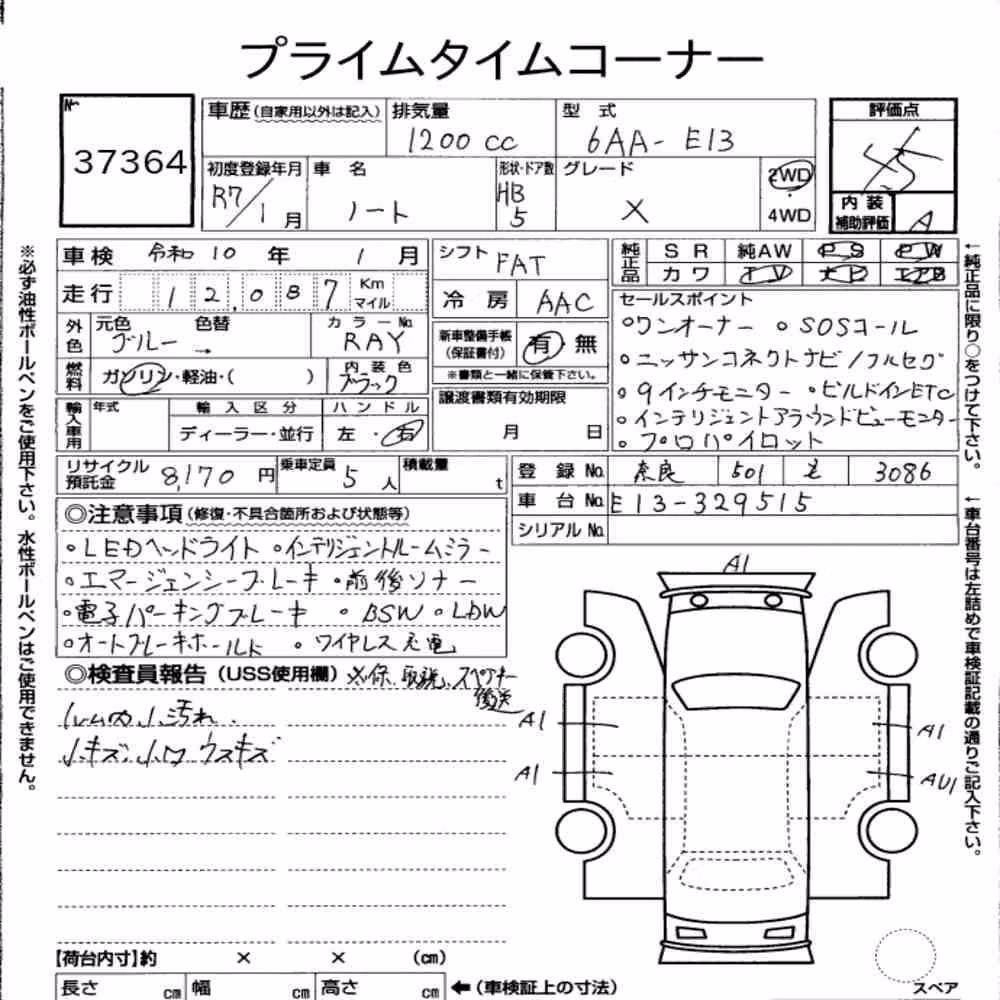 プライムタイムコーナー
№ 37364
車歴 (自家用以外は記入) 排気量 1200 cc 型式 6AA- E13
評価点 4.5
初度登録年月 R7/1月 車名 ノート 形状・ドア数 HB 5 グレード X 2WD 4WD
内装補助評価 A
車検 令和 10 年 1 月
シフト FAT
純正品 SR 純AW PS PW
カワ TV ナビ エアB
走行 12,087 Km マイル
冷房 AAC
セールスポイント
外色 元色 ブルー → 色替 カラーNo. RAY
新車整備手帳 (保証書付) 有 無
※書類と一緒に保管下さい。
燃料 ガソリン・軽油・( ) 内装色 ブラック
○ワンオーナー ○SOSコール
○ニッサンコネクトナビ/フルセグ
○9インチモニター ○ビルドインETC
○インテリジェントアラウンドビューモニター
○プロパイロット
輸入車用 年式 輸入区分 ディーラー・並行 ハンドル 左・右
譲渡書類有効期限
月 日
リサイクル預託金 8,170 円 乗車定員 5 人 積載量 t
登録No. 奈良 501 3086
車台No. E13-329515
シリアルNo.
◎注意事項 (修復・不具合箇所および状態等)
○LEDヘッドライト ○インテリジェントルームミラー
○エマージェンシーブレーキ ○前後ソナー
○電子パーキングブレーキ ○BSW ○LDW
○オートブレーキホールド ○ワイヤレス充電
◎検査員報告 (USS使用欄) ※保、取説、スペアキー
後送
ルーム内小汚れ
小キズ、小凹 ウスキズ
A1
A1
A1
A1
AU1
【荷台内寸】約 × × (cm)
長さ cm 幅 cm 高さ cm ←(車検証上の寸法)
スペア
※必ず油性ボールペンをご使用下さい。水性ボールペンはご使用できません。
←純正品に限り○をつけて下さい。
←車台番号は左詰めで車検証記載の通りご記入下さい。